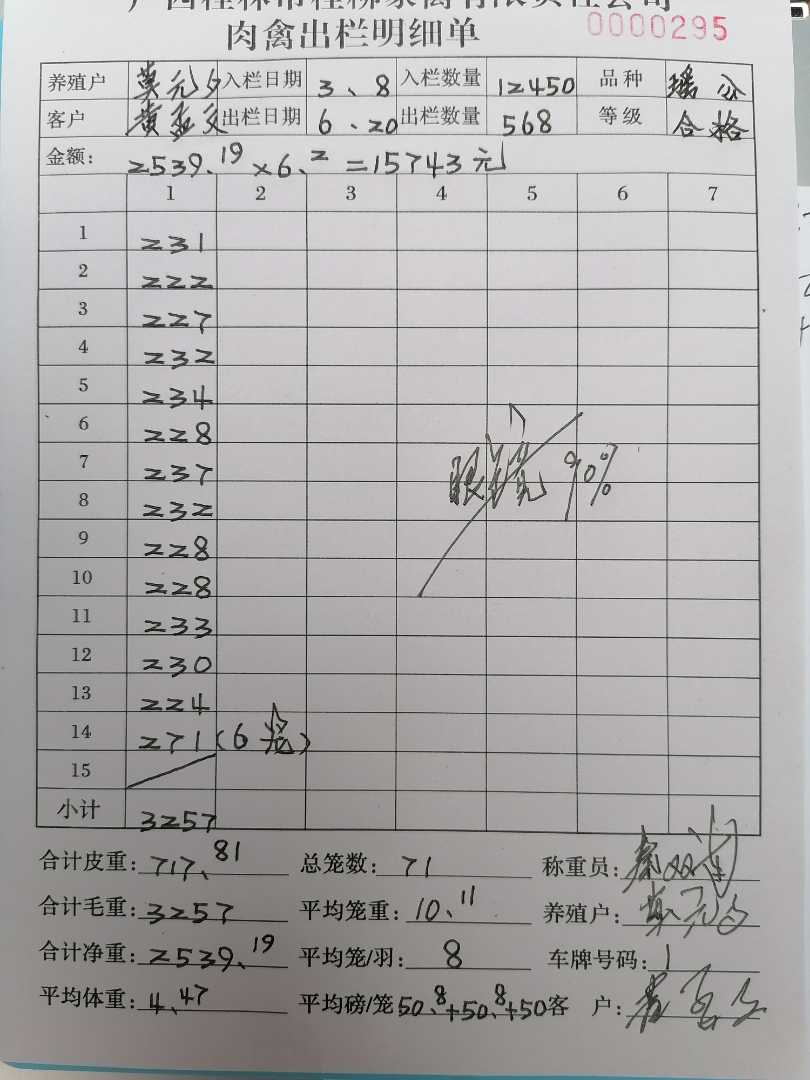 肉禽出栏明细单
0000295
养殖户 莫元 入栏日期 3、8 入栏数量 12450 品种 瑶
客户 黄 出栏日期 6、20 出栏数量 568 等级 合格
金额: 2539.19×6.2=15743元
1 2 3 4 5 6 7
1 231
2 222
3 227
4 232
5 234
6 228
7 237
8 232
9 228
10 228
11 233
12 230
13 224
14 271(6笼)
15
眼镜 90%
小计 3257
合计皮重: 717.81 总笼数: 71 称重员:
合计毛重: 3257 平均笼重: 10.11 养殖户:
合计净重: 2539.19 平均笼/羽: 8 车牌号码: 1
平均体重: 4.47 平均磅/笼 50.8+50.8+50 客 户: